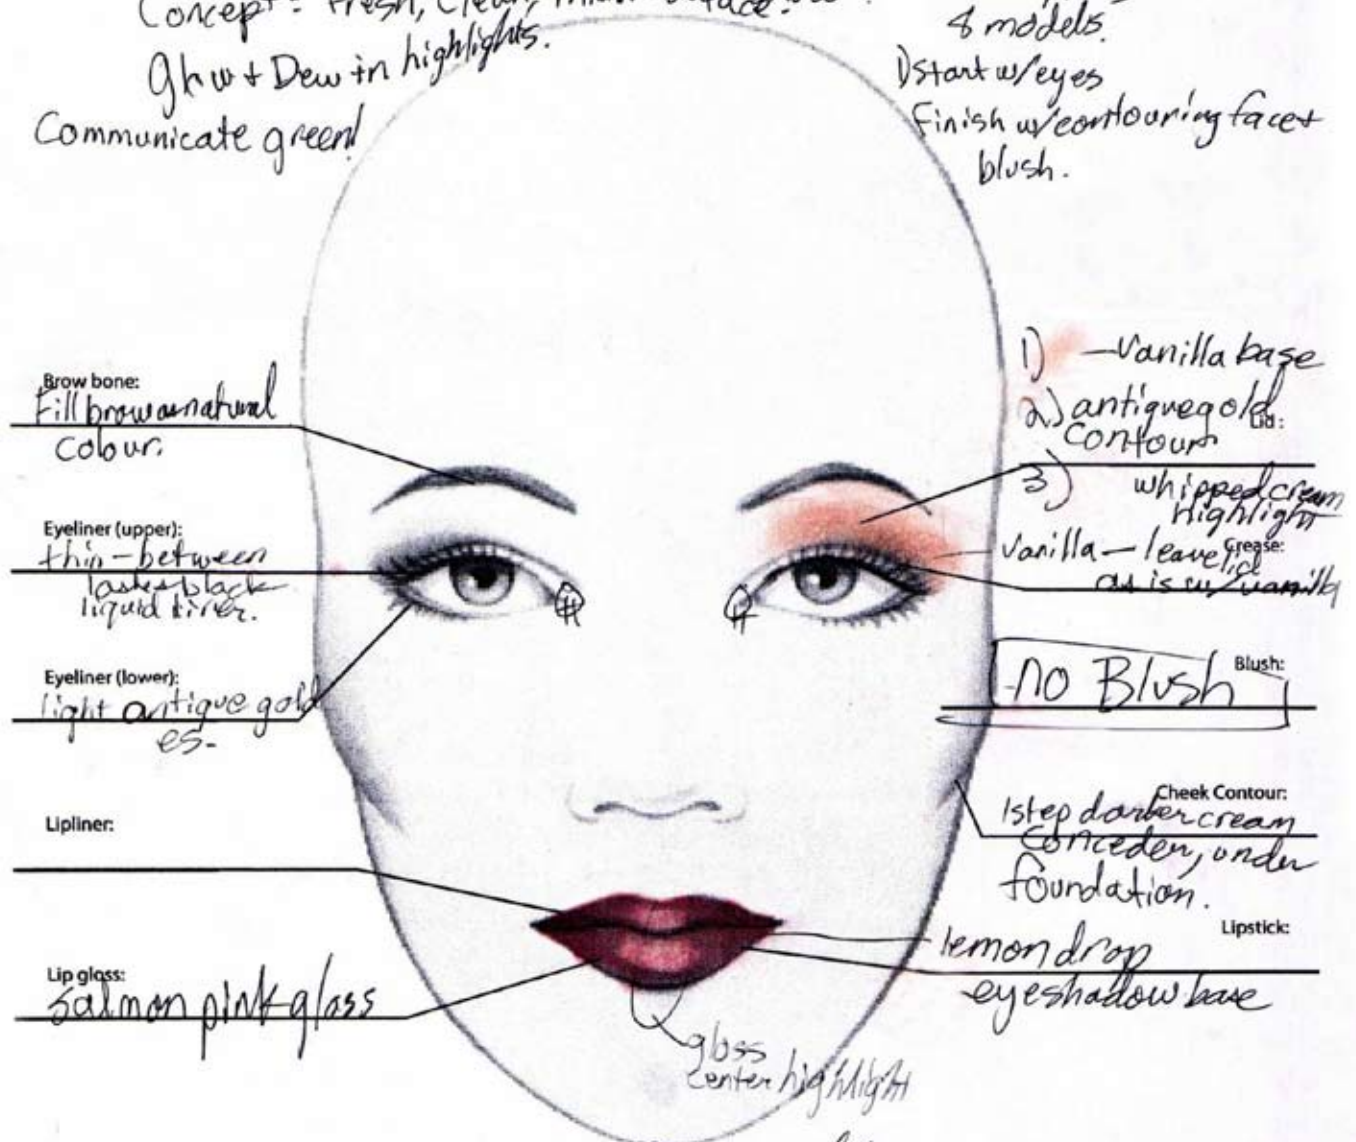 Concept: Fresh, Clean,
Glow + Dew in highlights.
Communicate green!
8 models.
1) start w/eyes
Finish w/contouring face +
blush.
Brow bone:
Fill brow as natural
colour.
Eyeliner (upper):
thin - between
lashes black
liquid liner.
Eyeliner (lower):
light antique gold
es-
Lipliner:
Lip gloss:
Salmon pink gloss
1) - Vanilla base
2) antique gold
Lid:
Contour
3) whipped cream
Highlight
Crease:
Vanilla - leave lid
as is w/vanilla
H
H
Blush:
no Blush
Cheek Contour:
1 step darker cream
Concealer, under
foundation.
Lipstick:
lemon drop
eyeshadow base
gloss
center highlight